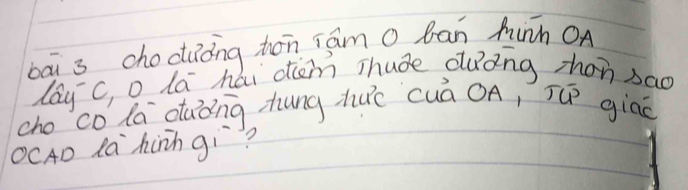 bài 3 cho đường tròn tâm O bán kính OA
lấy C, D là hai điểm thuộc đường tròn sao
cho CD là đường trung trực của OA, Tứ giác
OCAD là hình gì ?